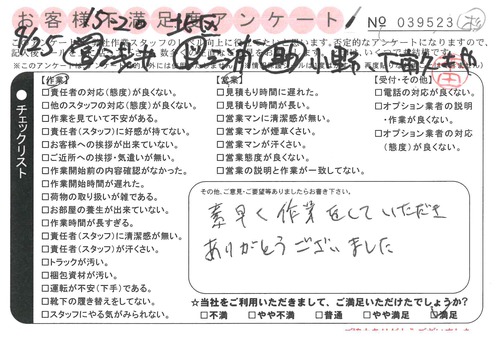 お客様不満足度アンケート
No 039523
9/25
15-20
【作業】
□責任者の対応(態度)が良くない。
□他のスタッフの対応(態度)が良くない。
□作業を見ていて不安がある。
□責任者(スタッフ)に好感が持てない。
□お客様への挨拶が出来ていない。
□ご近所への挨拶・気遣いが無い。
□作業開始前の内容確認がなかった。
□作業開始時間が遅れた。
□荷物の取り扱いが雑である。
□お部屋の養生が出来ていない。
□作業時間が長すぎる。
□責任者(スタッフ)に清潔感が無い。
□責任者(スタッフ)が汗くさい。
□トラックが汚い。
□梱包資材が汚い。
□運転が不安(下手)である。
□靴下の履き替えをしてない。
□スタッフにやる気がみられない。
【営業】
□見積もり時間に遅れた。
□見積もり時間が長い。
□営業マンに清潔感が無い。
□営業マンが煙草くさい。
□営業マンが汗くさい。
□営業態度が良くない。
□営業の説明と作業が一致してない。
【受付・その他】
□電話の対応が良くない。
□オプション業者の説明
・作業が良くない。
□オプション業者の対応
(態度)が良くない。
チェックリスト
その他、ご意見・ご要望等ありましたらお書き下さい。
素早く作業をしていただき
ありがとうございました
☆当社をご利用いただきまして、ご満足いただけたでしょうか?
□不満 □やや不満 □普通 □やや満足 ☑満足